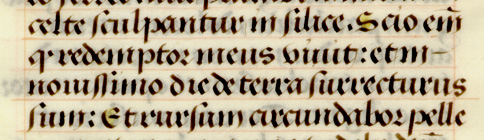 celte sculpantur in silice. Scio em̃
q̃ redemptor meus viuit: et in
nouissimo die de terra surrecturus
sum: Et rursum circundabor pelle